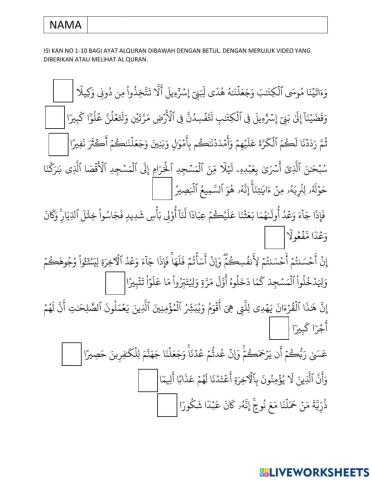 NAMA
ISI KAN NO 1-10 BAGI AYAT ALQURAN DIBAWAH DENGAN BETUL. DENGAN MERUJUK VIDEO YANG
DIBERIKAN ATAU MELIHAT AL QURAN.
وَءَاتَيْنَا مُوسَى ٱلْكِتَـٰبَ وَجَعَلْنَـٰهُ هُدًى لِّبَنِىٓ إِسْرَٰٓءِيلَ أَلَّا تَتَّخِذُوا۟ مِن دُونِى وَكِيلًا
وَقَضَيْنَآ إِلَىٰ بَنِىٓ إِسْرَٰٓءِيلَ فِى ٱلْكِتَـٰبِ لَتُفْسِدُنَّ فِى ٱلْأَرْضِ مَرَّتَيْنِ وَلَتَعْلُنَّ عُلُوًّا كَبِيرًا
ثُمَّ رَدَدْنَا لَكُمُ ٱلْكَرَّةَ عَلَيْهِمْ وَأَمْدَدْنَـٰكُم بِأَمْوَٰلٍ وَبَنِينَ وَجَعَلْنَـٰكُمْ أَكْثَرَ نَفِيرًا
سُبْحَـٰنَ ٱلَّذِىٓ أَسْرَىٰ بِعَبْدِهِۦ لَيْلًا مِّنَ ٱلْمَسْجِدِ ٱلْحَرَامِ إِلَى ٱلْمَسْجِدِ ٱلْأَقْصَا ٱلَّذِى بَـٰرَكْنَا
حَوْلَهُۥ لِنُرِيَهُۥ مِنْ ءَايَـٰتِنَآ إِنَّهُۥ هُوَ ٱلسَّمِيعُ ٱلْبَصِيرُ
فَإِذَا جَآءَ وَعْدُ أُولَىٰهُمَا بَعَثْنَا عَلَيْكُمْ عِبَادًا لَّنَآ أُو۟لِى بَأْسٍ شَدِيدٍ فَجَاسُوا۟ خِلَـٰلَ ٱلدِّيَارِ وَكَانَ
وَعْدًا مَّفْعُولًا
إِنْ أَحْسَنتُمْ أَحْسَنتُمْ لِأَنفُسِكُمْ وَإِنْ أَسَأْتُمْ فَلَهَا فَإِذَا جَآءَ وَعْدُ ٱلْـَٔاخِرَةِ لِيَسُـۥٓـُٔوا۟ وُجُوهَكُمْ
وَلِيَدْخُلُوا۟ ٱلْمَسْجِدَ كَمَا دَخَلُوهُ أَوَّلَ مَرَّةٍ وَلِيُتَبِّرُوا۟ مَا عَلَوْا۟ تَتْبِيرًا
إِنَّ هَـٰذَا ٱلْقُرْءَانَ يَهْدِى لِلَّتِى هِىَ أَقْوَمُ وَيُبَشِّرُ ٱلْمُؤْمِنِينَ ٱلَّذِينَ يَعْمَلُونَ ٱلصَّـٰلِحَـٰتِ أَنَّ لَهُمْ
أَجْرًا كَبِيرًا
عَسَىٰ رَبُّكُمْ أَن يَرْحَمَكُمْ وَإِنْ عُدتُّمْ عُدْنَا وَجَعَلْنَا جَهَنَّمَ لِلْكَـٰفِرِينَ حَصِيرًا
وَأَنَّ ٱلَّذِينَ لَا يُؤْمِنُونَ بِٱلْـَٔاخِرَةِ أَعْتَدْنَا لَهُمْ عَذَابًا أَلِيمًا
ذُرِّيَّةَ مَنْ حَمَلْنَا مَعَ نُوحٍ إِنَّهُۥ كَانَ عَبْدًا شَكُورًا
LIVEWORKSHEETS